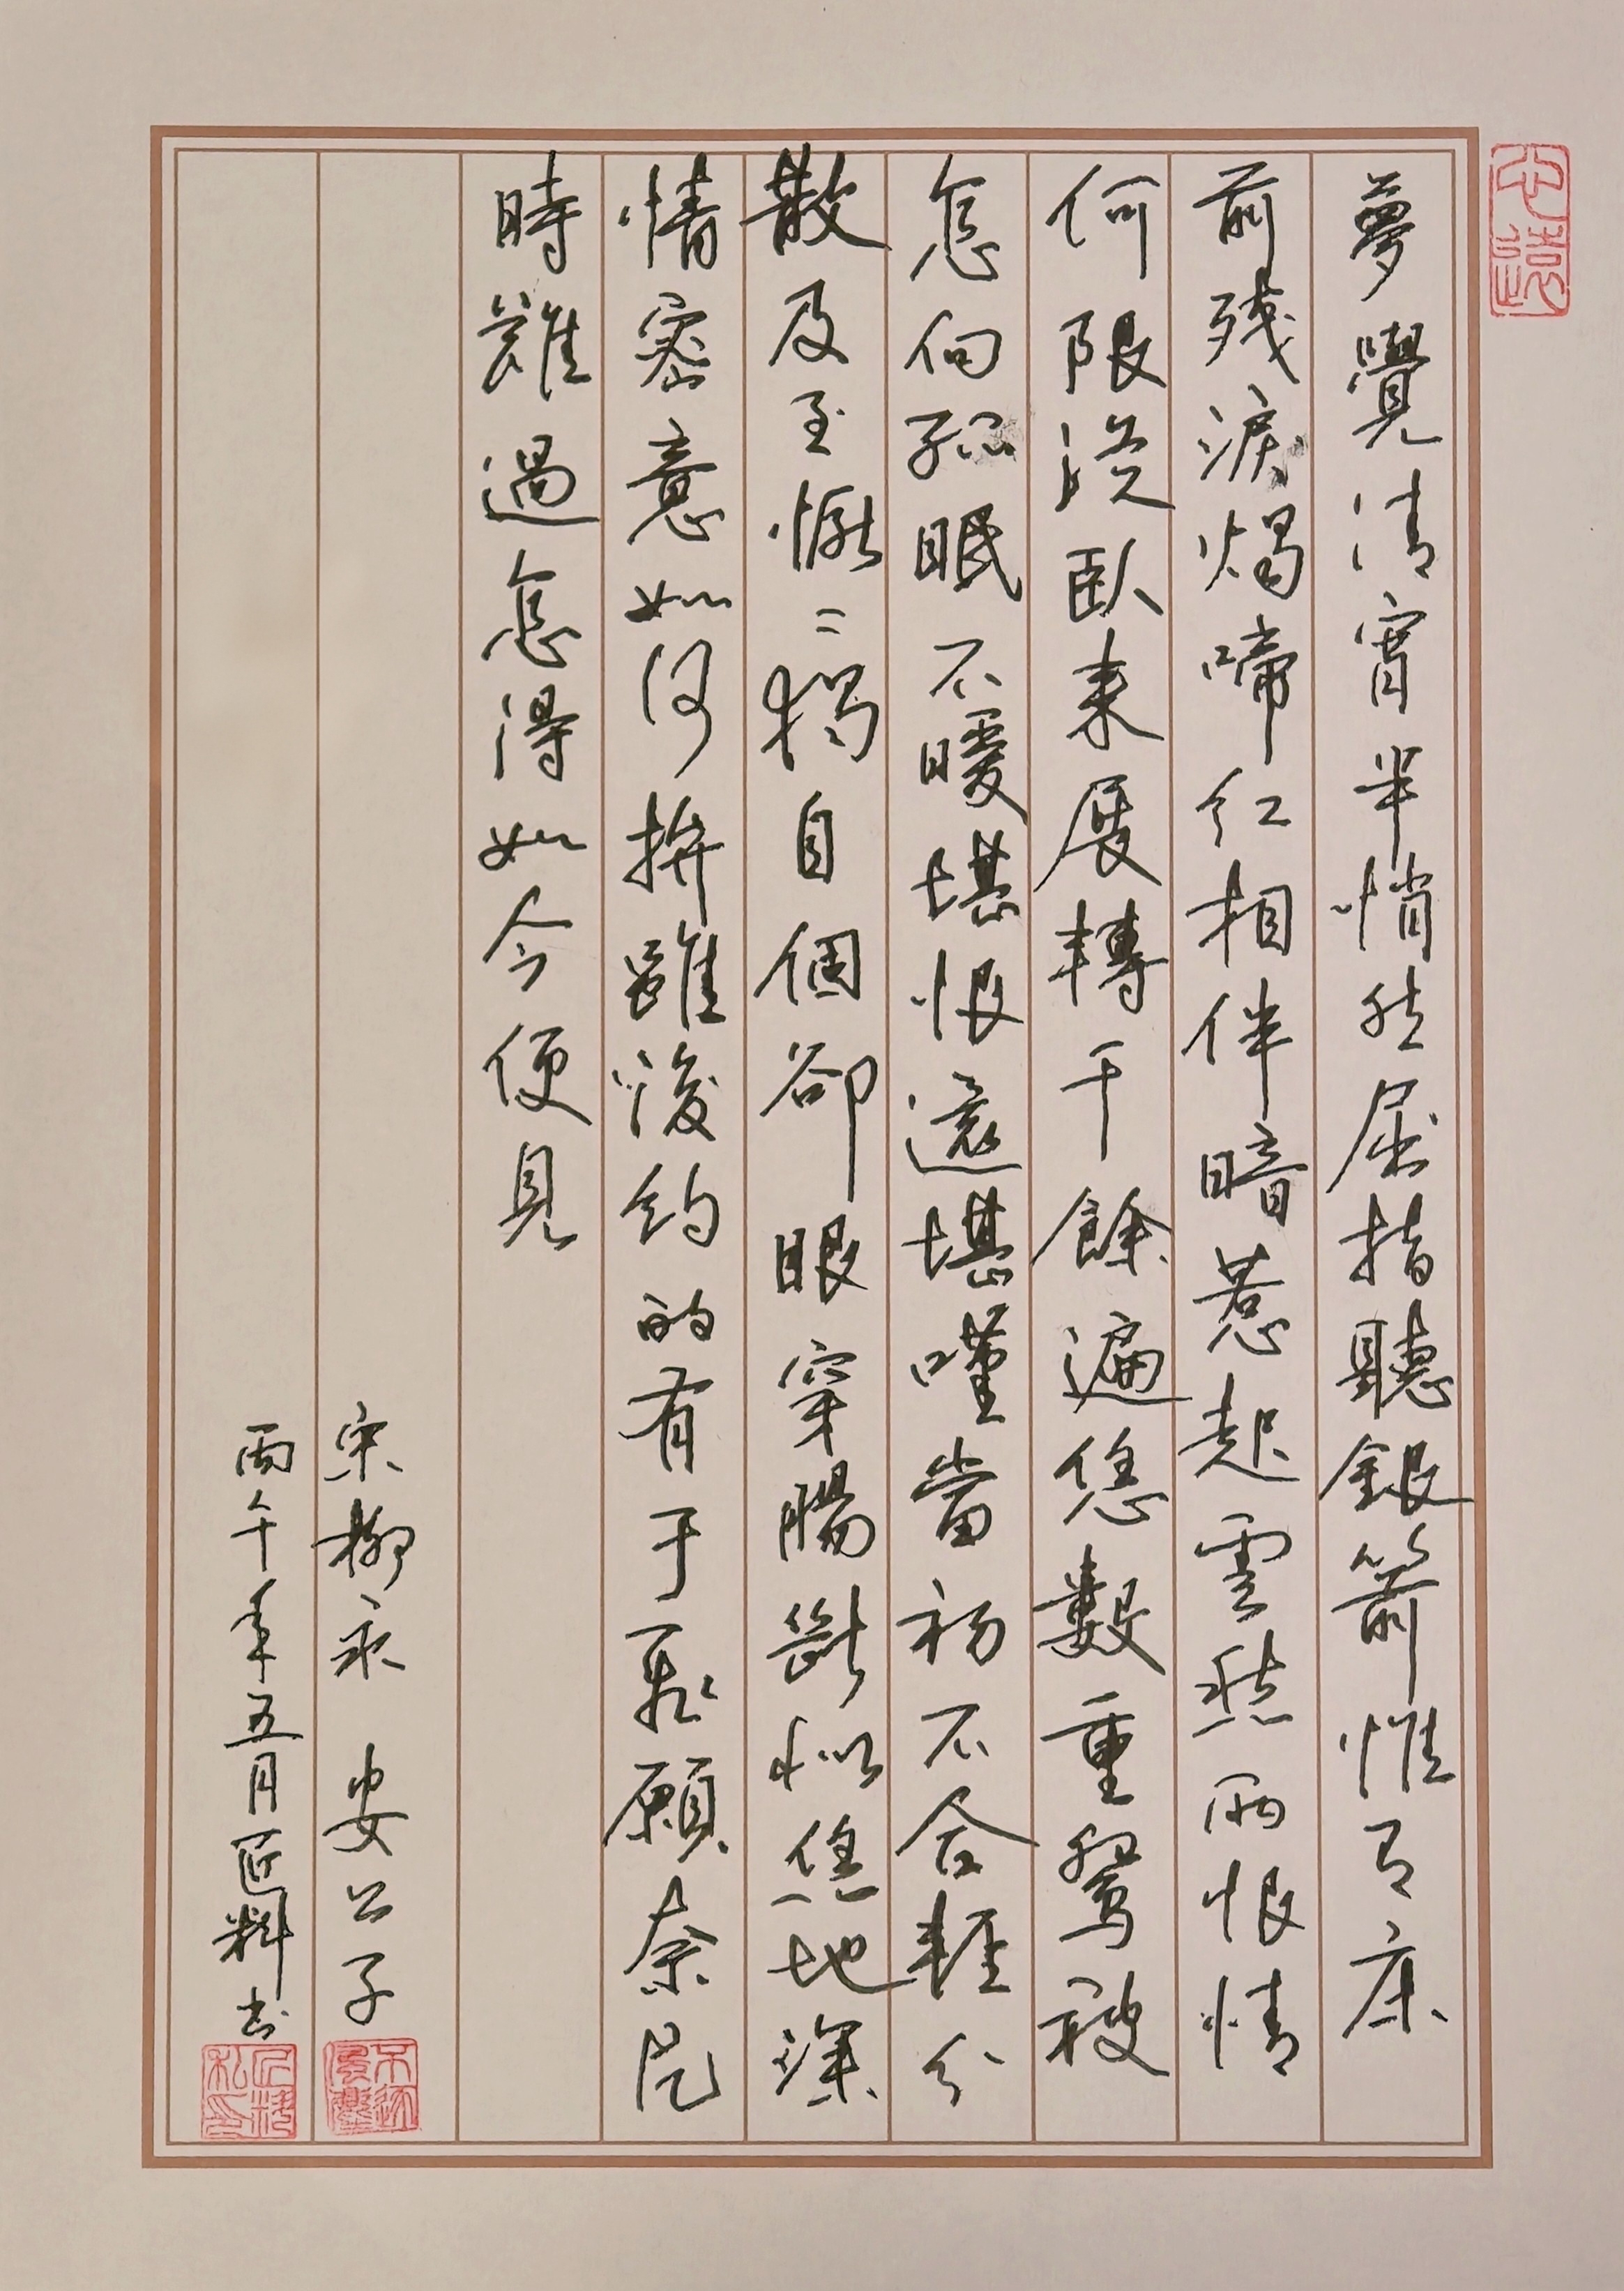 夢覺清宵半悄然屈指聽銀箭惟有床
前殘淚燭啼紅相伴暗惹起雲愁雨恨情
何限從臥來展轉千餘遍恁數重鴛被
怎向孤眠不暖堪恨還堪嘆當初不合輕分
散及至懨〻獨自個卻眼穿腸斷似恁地深
情密意如何拚雖後約的有于飛願奈片
時難過怎得如今便見
宋柳永 安公子
丙午年五月匠料书
匠料私印